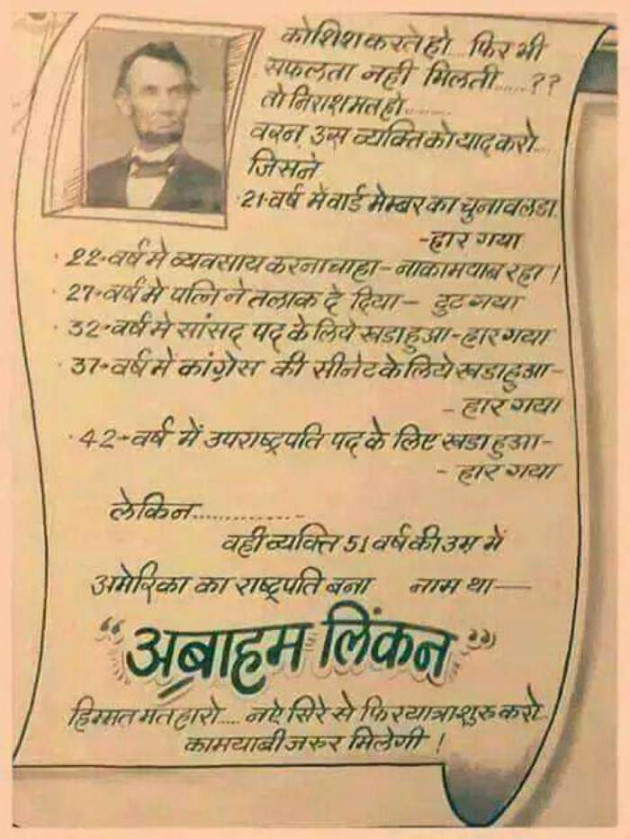 कोशिश करते हो... फिर भी
सफलता नही मिलती.....??
तो निराश मत हो........
वरन उस व्यक्ति को याद करो...
जिसने
21-वर्ष में वार्ड मेम्बर का चुनाव लडा.
-हार गया
· 22-वर्ष मे व्यवसाय करना चाहा- नाकामयाब रहा।
· 27-वर्ष मे पत्नि ने तलाक दे दिया- टुट गया
· 32-वर्ष मे सांसद पद के लिये खडा हुआ-हार गया
· 37-वर्ष में कांग्रेस की सीनेट के लिये खडा हुआ-
- हार गया
· 42-वर्ष में उपराष्ट्रपति पद के लिए खडा हुआ-
- हार गया
लेकिन..............
वही व्यक्ति 51 वर्ष की उम्र में
अमेरिका का राष्ट्रपति बना नाम था—
“अब्राहम लिंकन”
हिम्मत मत हारो.... नऐ सिरे से फिर यात्रा शुरु करो
कामयाबी जरुर मिलेगी !